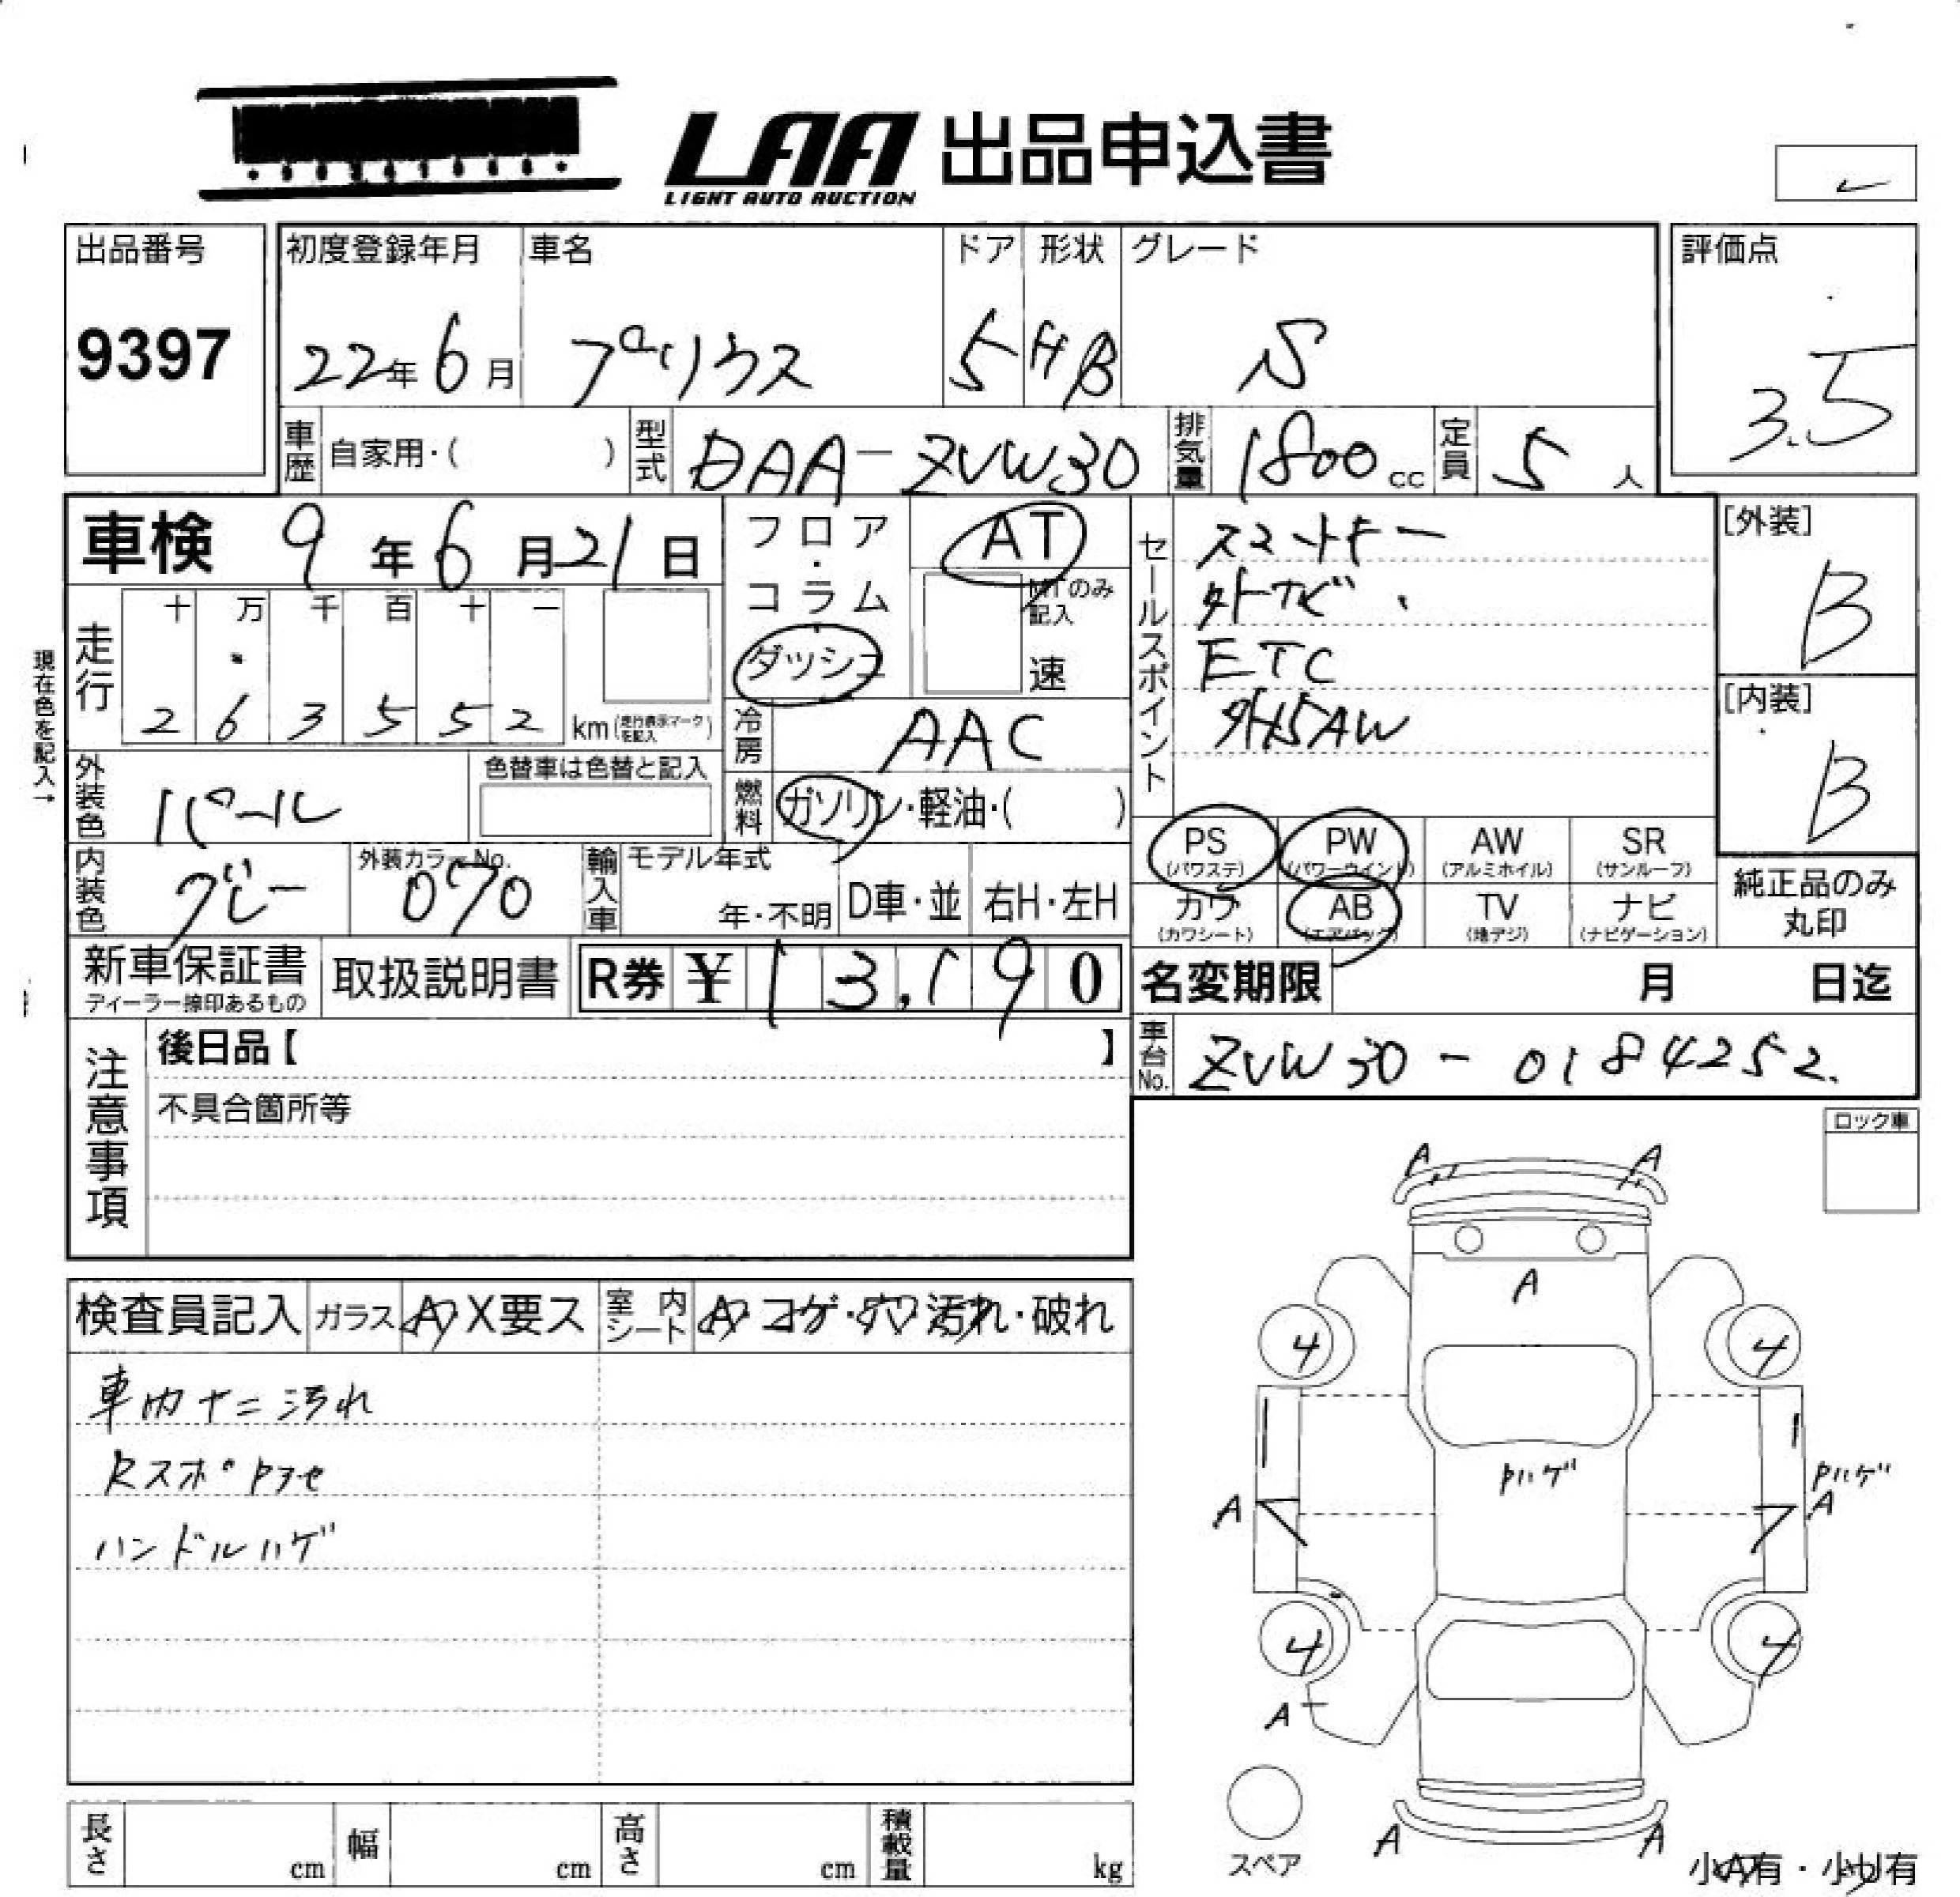 LAA 出品申込書
LIGHT AUTO AUCTION
出品番号
9397
初度登録年月 車名 ドア 形状 グレード 評価点
22年6月 プリウス 5 HB S 3.5
車歴 自家用・( ) 型式 DAA-ZVW30 排気量 1800cc 定員 5人
車検 9年6月21日
フロア・コラム
ダッシュ
AT
MTのみ記入
速
セールスポイント
スマートキー
外ナビ
ETC
外15AW
[外装]
B
[内装]
B
現在色を記入→
走行 十 万 千 百 十 一
2 6 3 5 5 2 km(走行表示マークを記入)
冷房 AAC
外装色 パール 色替車は色替と記入
燃料 ガソリン・軽油・( )
内装色 グレー 外装カラーNo. 070
輸入車 モデル年式 年・不明 D車・並 右H・左H
PS (パワステ) PW (パワーウインド) AW (アルミホイル) SR (サンルーフ)
カワ (カワシート) AB (エアバック) TV (地デジ) ナビ (ナビゲーション)
純正品のみ丸印
新車保証書 ディーラー捺印あるもの 取扱説明書 R券 ¥13,190
名変期限 月 日迄
車台No. ZVW30-0184252.
注意事項
後日品【 】
不具合箇所等
ロック車
検査員記入 ガラス A X要ス 室内シート A コゲ・穴 汚れ・破れ
車内キズ汚れ
RスポPヌケ
ハンドルハゲ
A A
A
4 4
Pハゲ Pハゲ
A A
4 4
A
A A
スペア
小A有・小U有
長さ cm 幅 cm 高さ cm 積載量 kg